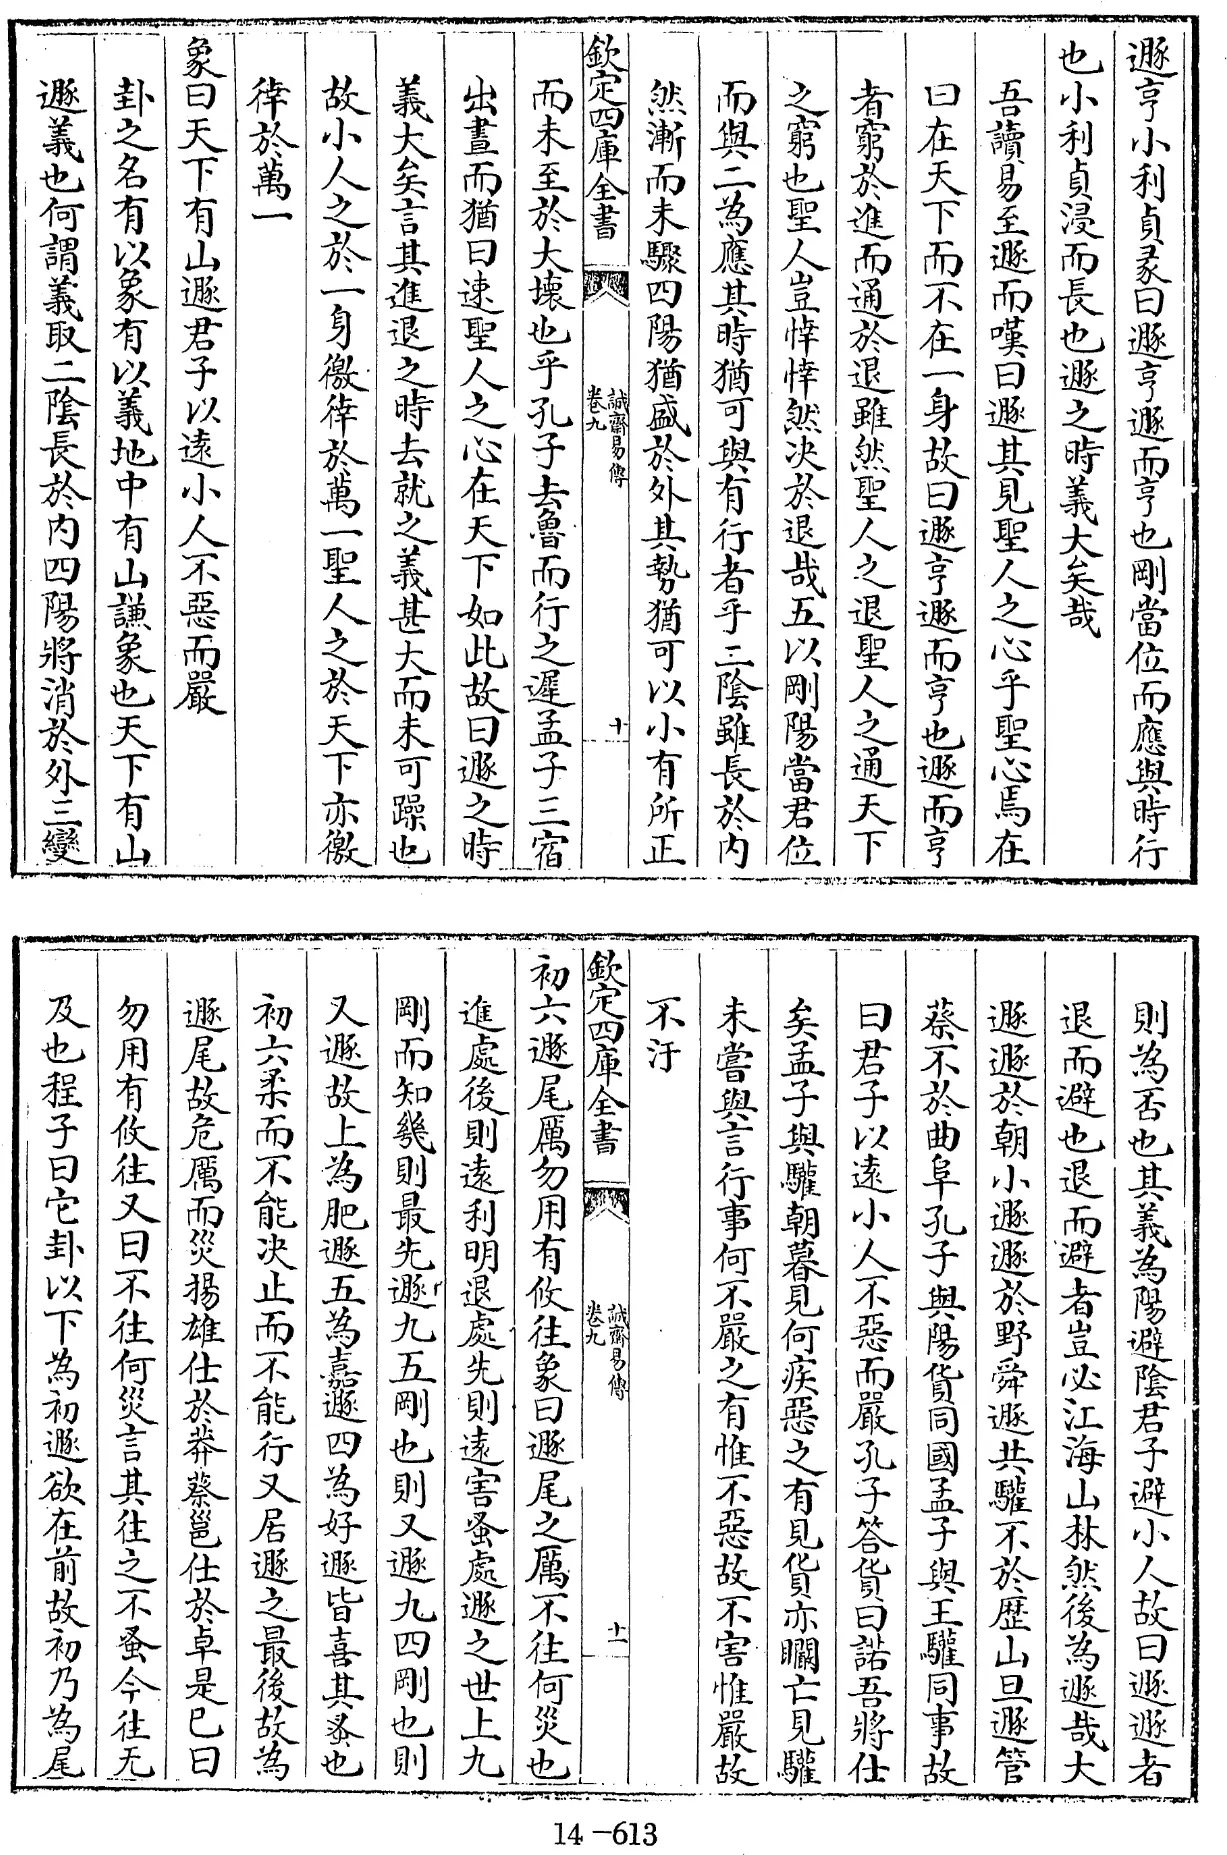 遯亨小利貞彖曰遯亨遯而亨也剛當位而應與時行
也小利貞浸而長也遯之時義大矣哉
吾讀易至遯而嘆曰遯其見聖人之心乎聖心焉在
曰在天下而不在一身故曰遯亨遯而亨也遯而亨
者窮於進而通於退雖然聖人之退聖人之通天下
之窮也聖人豈悻悻然决於退哉五以剛陽當君位
而與二為應其時猶可與有行者乎二陰雖長於内
然漸而未驟四陽猶盛於外其勢猶可以小有所正
欽定四庫全書
誠齋易傳
卷九
十
而未至於大壊也乎孔子去魯而行之遲孟子三宿
出晝而猶曰速聖人之心在天下如此故曰遯之時
義大矣言其進退之時去就之義甚大而未可躁也
故小人之於一身徼倖於萬一聖人之於天下亦徼
倖於萬一
象曰天下有山遯君子以逺小人不惡而嚴
卦之名有以象有以義地中有山謙象也天下有山
遯義也何謂義取二隂長於内四陽將消於外三變
則為否也其義為陽避隂君子避小人故曰遯遯者
退而避也退而避者豈必江海山林然後為遯哉大
遯遯於朝小遯遯於野舜遯共驩不於歴山旦遯管
蔡不於曲阜孔子與陽貨同國孟子與王驩同事故
曰君子以逺小人不惡而嚴孔子答貨曰諾吾將仕
矣孟子與驩朝暮見何疾惡之有見貨亦瞷亡見驩
未嘗與言行事何不嚴之有惟不惡故不害惟嚴故
不汙
欽定四庫全書
誠齋易傳
卷九
十一
初六遯尾厲勿用有攸往象曰遯尾之厲不往何災也
進處後則逺利明退處先則逺害蚤處遯之世上九
剛而知幾則最先遯九五剛也則又遯九四剛也則
又遯故上為肥遯五為嘉遯四為好遯皆喜其蚤也
初六柔而不能决止而不能行又居遯之最後故為
遯尾故危厲而災揚雄仕於莽蔡邕仕於卓是已曰
勿用有攸往又曰不往何災言其往之不蚤今往无
及也程子曰它卦以下為初遯欲在前故初乃為尾
14-613